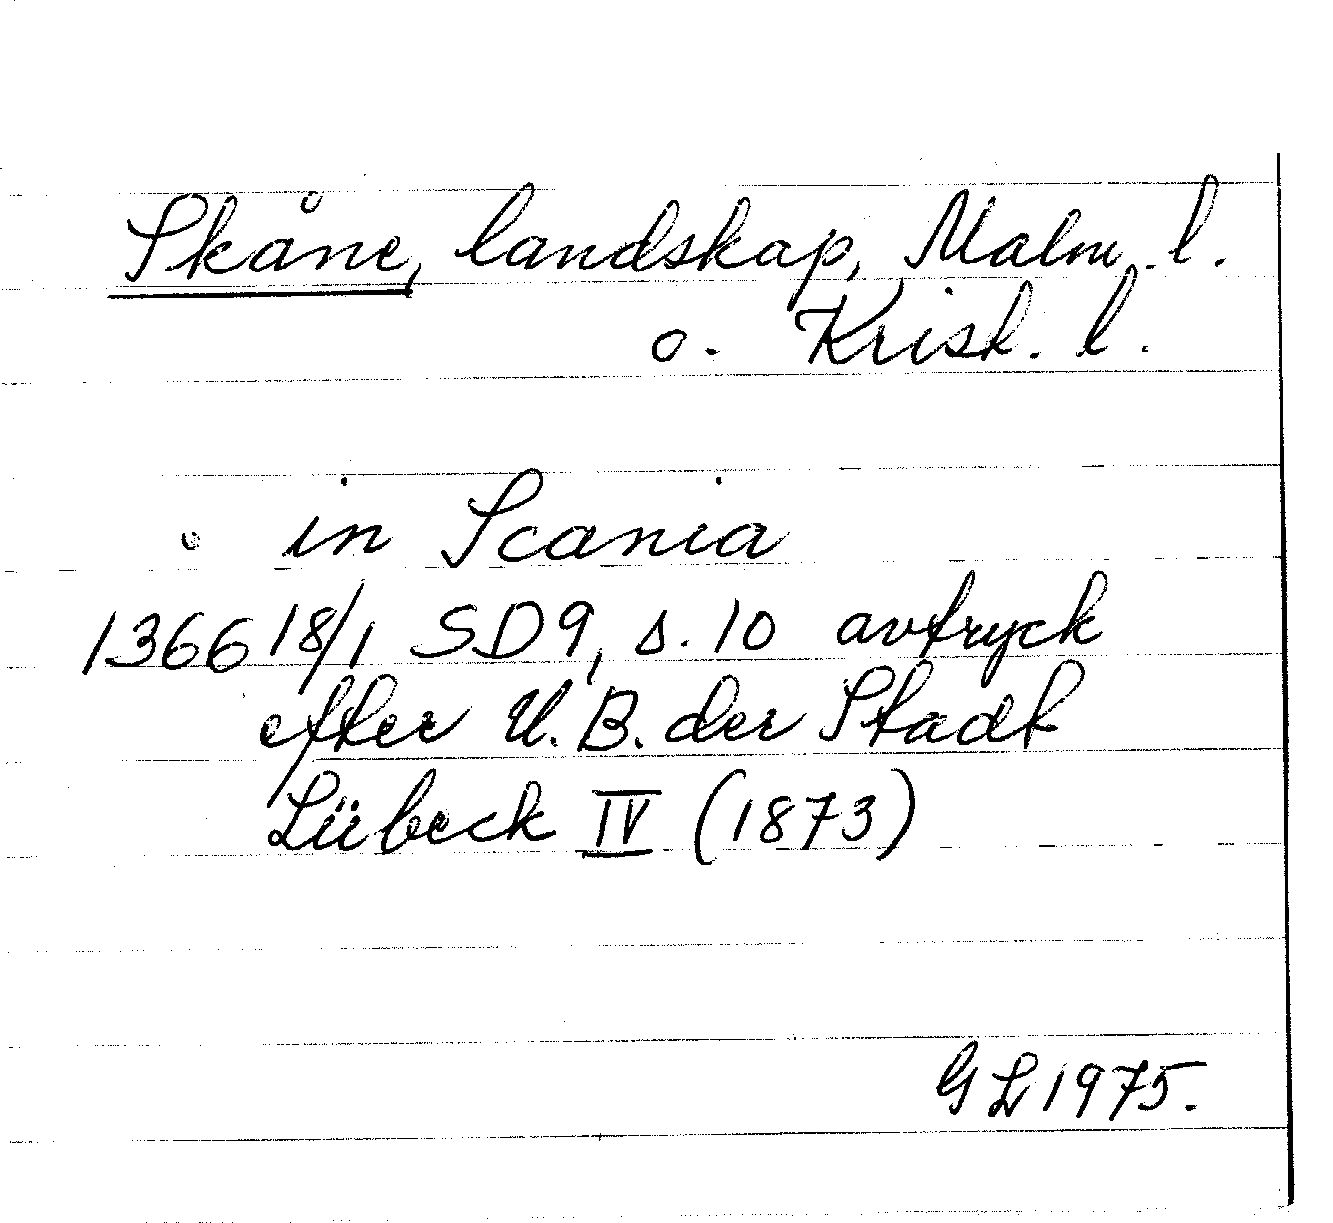 Skåne, landskap, Malm. l.
o. Krist. l.
in Scania
1366 18/1 SD9, s. 10 avtryck
efter U.B. der Stadt
Lübeck IV (1873)
GL 1975.